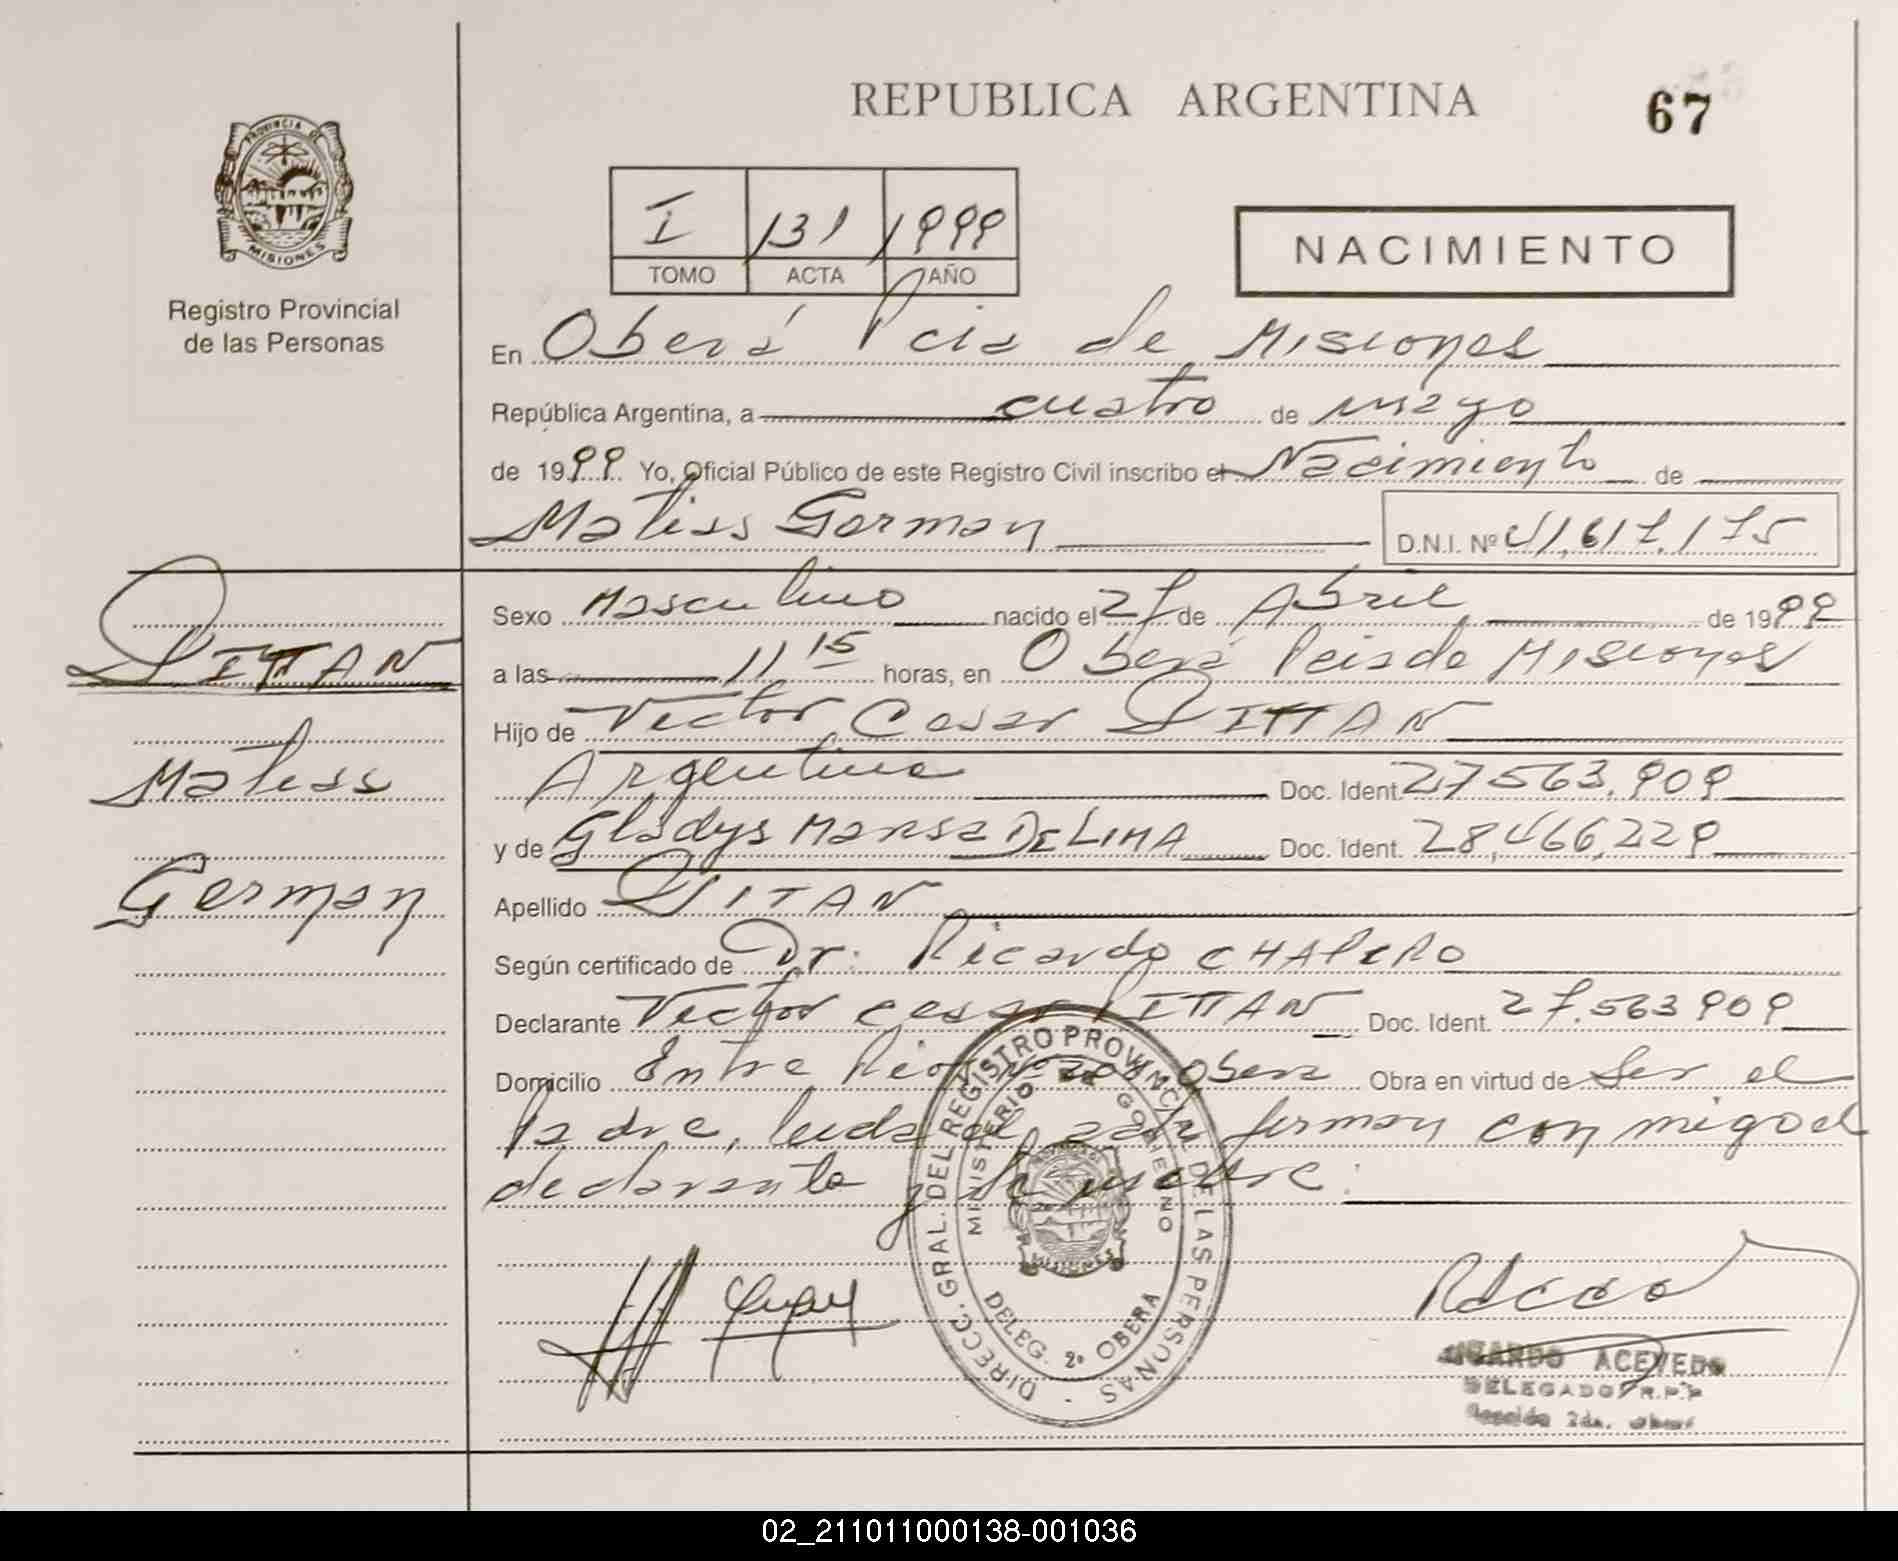 REPUBLICA ARGENTINA
67
PROVINCIA DE
MISIONES
Registro Provincial
de las Personas
I 131 1999
TOMO ACTA AÑO
NACIMIENTO
En Oberá Pcia de Misiones
República Argentina, a cuatro de mayo
de 1999 Yo, Oficial Público de este Registro Civil inscribo el Nacimiento de
Matias German D.N.I. Nº 41,617,175
Sexo Masculino nacido el 27 de Abril de 1999
a las 11 15 horas, en Oberá Pcia de Misiones
Hijo de Victor Cesar DITTAN
Argentino Doc. Ident. 27563,909
y de Gladys Marisa DE LIMA Doc. Ident. 28,466,229
Apellido DITTAN
Según certificado de Dr. Ricardo
Declarante Victor Cesar DITTAN Doc. Ident. 27.563909
Domicilio Entre Rios Obera Obra en virtud de Ser el
Padre, leida el acta firman conmigo el
declarante y la madre:
DITTAN
Matias
German
DIRECC. GRAL. DEL REGISTRO PROVINCIAL DE LAS PERSONAS
MINISTERIO DE GOBIERNO
MISIONES
DELEG. 2º OBERA
ACEVEDO
DELEGADO R.P.P
02_211011000138-001036